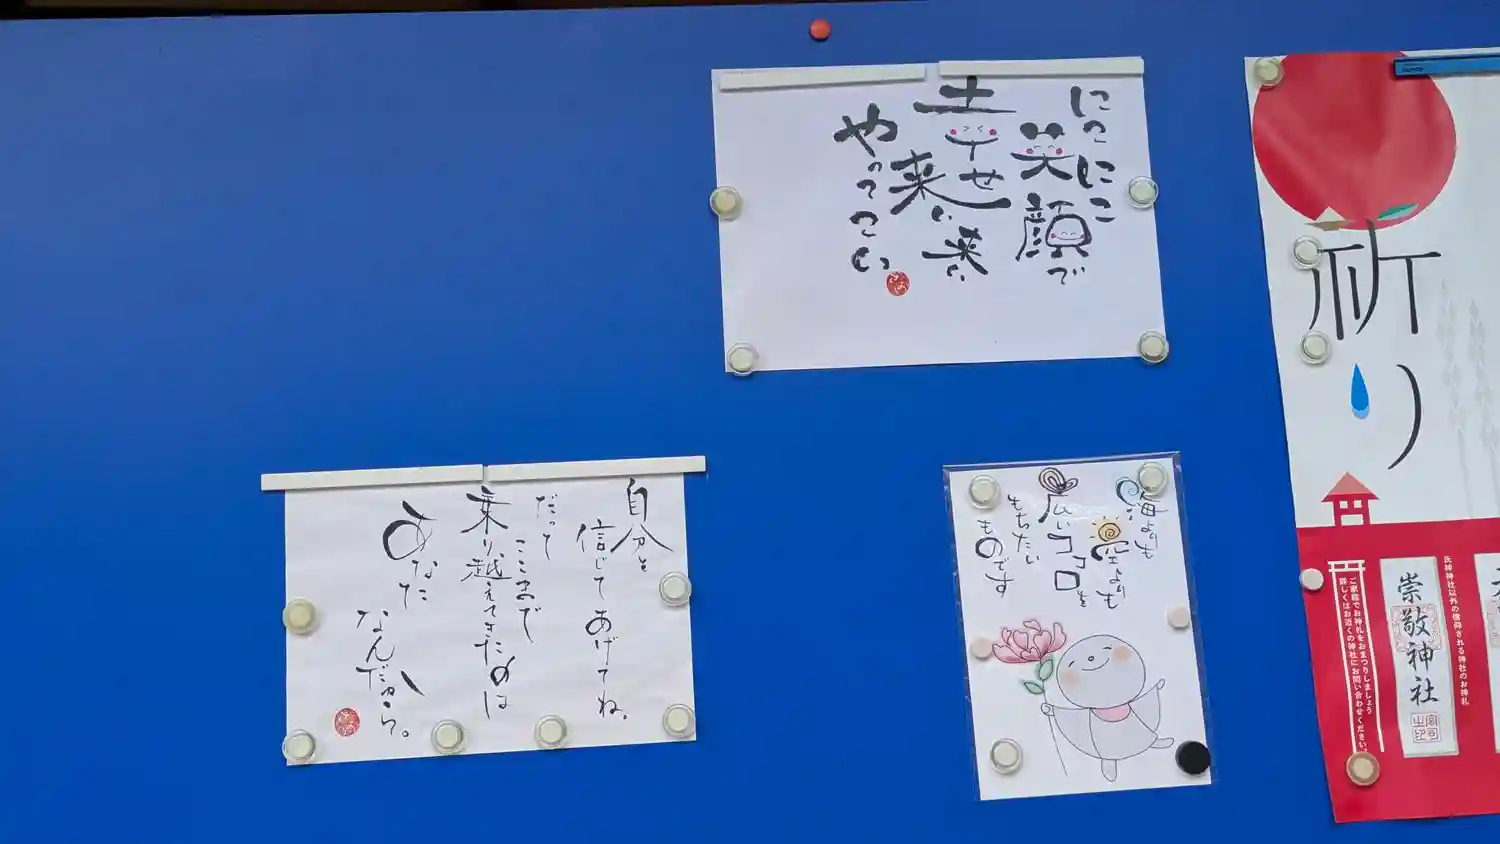 にこにこ
笑顔で
幸せ
来い来い
やってこい
自分を
信じてあげてね。
だって
ここまで
乗り越えてきたのは
あなた
なんだから。
海よりも
空よりも
広いココロを
もちたい
ものです
祈り
氏神神社以外の信仰される神社のお神札
崇敬神社
宮司之印
ご家庭でお神札をおまつりしましょう
詳しくはお近くの神社にお問い合わせください。